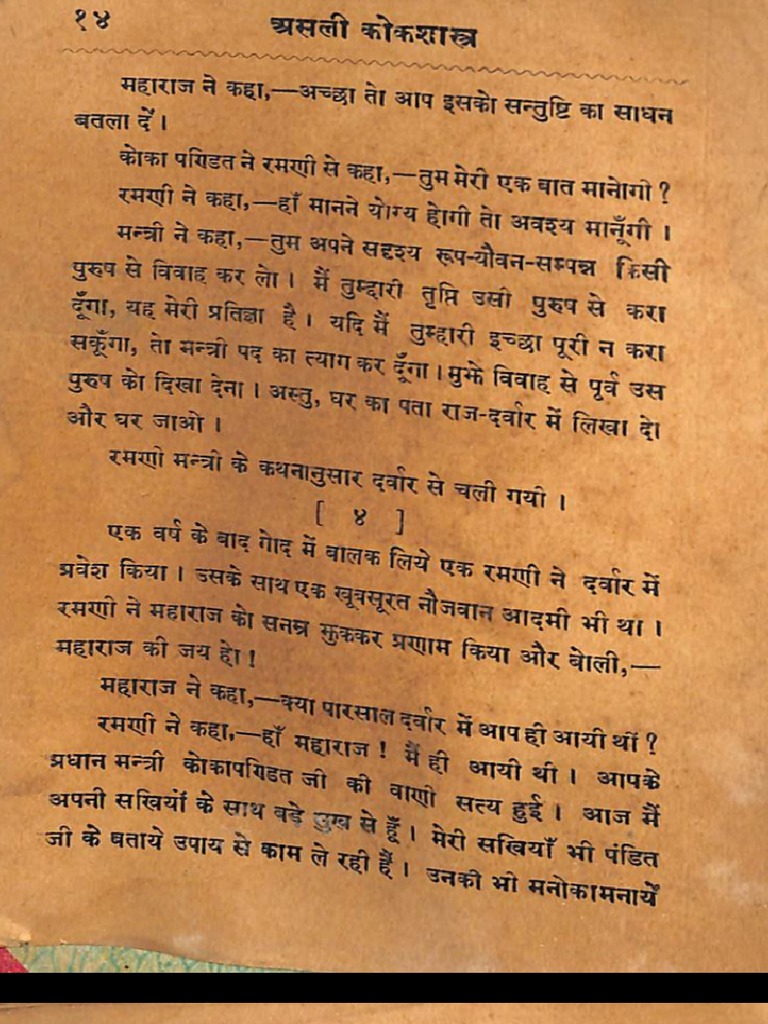 १४
असली कोकशास्त्र
महाराज ने कहा,—अच्छा तो आप इसको सन्तुष्टि का साधन
बतला दें।
कोका पण्डित ने रमणी से कहा,—तुम मेरी एक बात मानोगी ?
रमणी ने कहा,—हाँ मानने योग्य होगी तो अवश्य मानूँगी ।
मन्त्री ने कहा,—तुम अपने सदृश्य रूप-यौवन-सम्पन्न किसी
पुरुष से विवाह कर लो । मैं तुम्हारी तृप्ति उसी पुरुष से करा
दूँगा, यह मेरी प्रतिज्ञा है । यदि मैं तुम्हारी इच्छा पूरी न करा
सकूँगा, तो मन्त्री पद का त्याग कर दूँगा । मुझे विवाह से पूर्व उस
पुरुष को दिखा देना । अस्तु, घर का पता राज-दर्वार में लिखा दो
और घर जाओ ।
रमणी मन्त्री के कथनानुसार दर्वार से चली गयी ।
[ ४ ]
एक वर्ष के बाद गोद में बालक लिये एक रमणी ने दर्वार में
प्रवेश किया । उसके साथ एक खूबसूरत नौजवान आदमी भी था ।
रमणी ने महाराज को सनम्र झुककर प्रणाम किया और बोली,—
महाराज की जय हो !
महाराज ने कहा,—क्या पारसाल दर्वार में आप ही आयी थीं ?
रमणी ने कहा,—हाँ महाराज ! मैं ही आयी थी । आपके
प्रधान मन्त्री कोकापण्डित जी की वाणी सत्य हुई । आज मैं
अपनी सखियों के साथ बड़े सुख से हूँ । मेरी सखियाँ भी पंडित
जी के बताये उपाय से काम ले रही हैं । उनकी भी मनोकामनायें